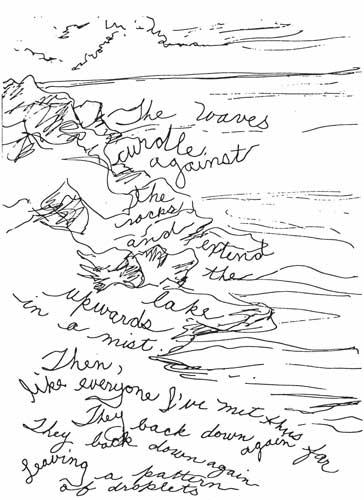 The waves
curdle
against
the
rocks
and extend
the
lake
upwards
in a mist.
Then,
like everyone I've met this far
They back down again
They back down again
Leaving a pattern
of droplets